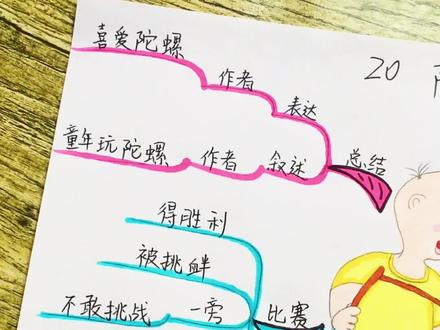 喜爱陀螺 作者 表达
20
童年玩陀螺 作者 叙述 总结
得胜利
被挑衅
不敢挑战 一旁 比赛